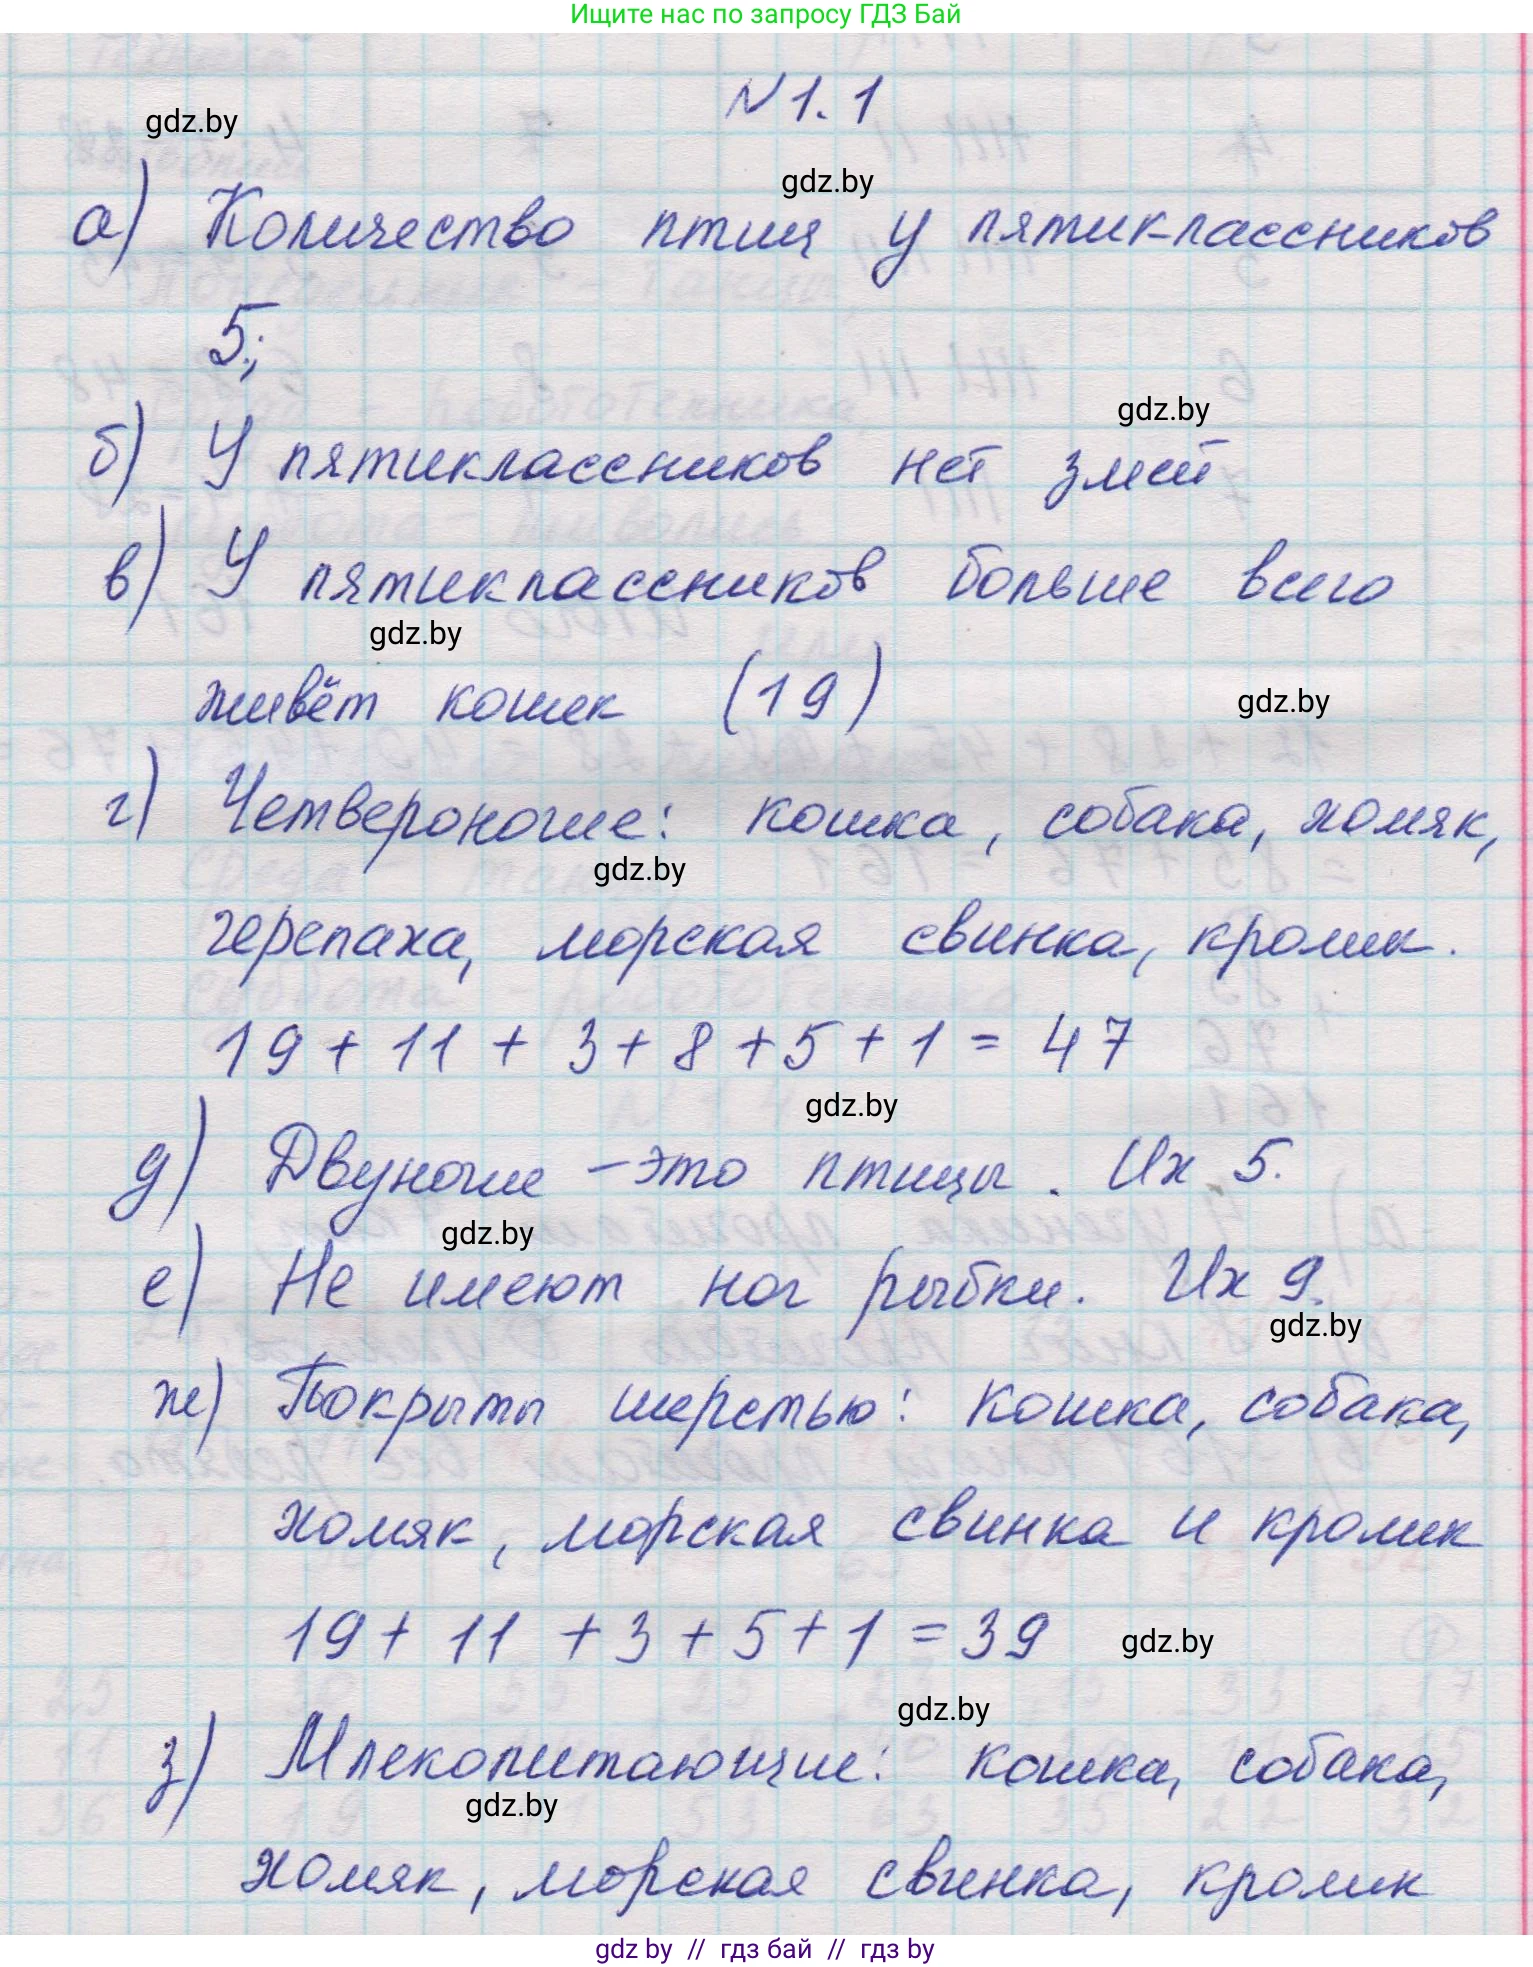 Ищите нас по запросу ГДЗ Бай
№1.1
gdz.by
gdz.by
а) Количество птиц у пятиклассников
5;
gdz.by
б) У пятиклассников нет змей
в) У пятиклассников больше всего
gdz.by
живёт кошек (19)
gdz.by
г) Четвероногие: кошка, собака, хомяк,
gdz.by
черепаха, морская свинка, кролик.
19 + 11 + 3 + 8 + 5 + 1 = 47
gdz.by
д) Двуногие - это птицы. Их 5.
gdz.by
е) Не имеют ног рыбки. Их 9.
gdz.by
ж) Покрыты шерстью: кошка, собака,
хомяк, морская свинка и кролик
19 + 11 + 3 + 5 + 1 = 39
gdz.by
gdz.by
з) Млекопитающие: кошка, собака,
gdz.by
хомяк, морская свинка, кролик
gdz by // гдз бай // гдз by